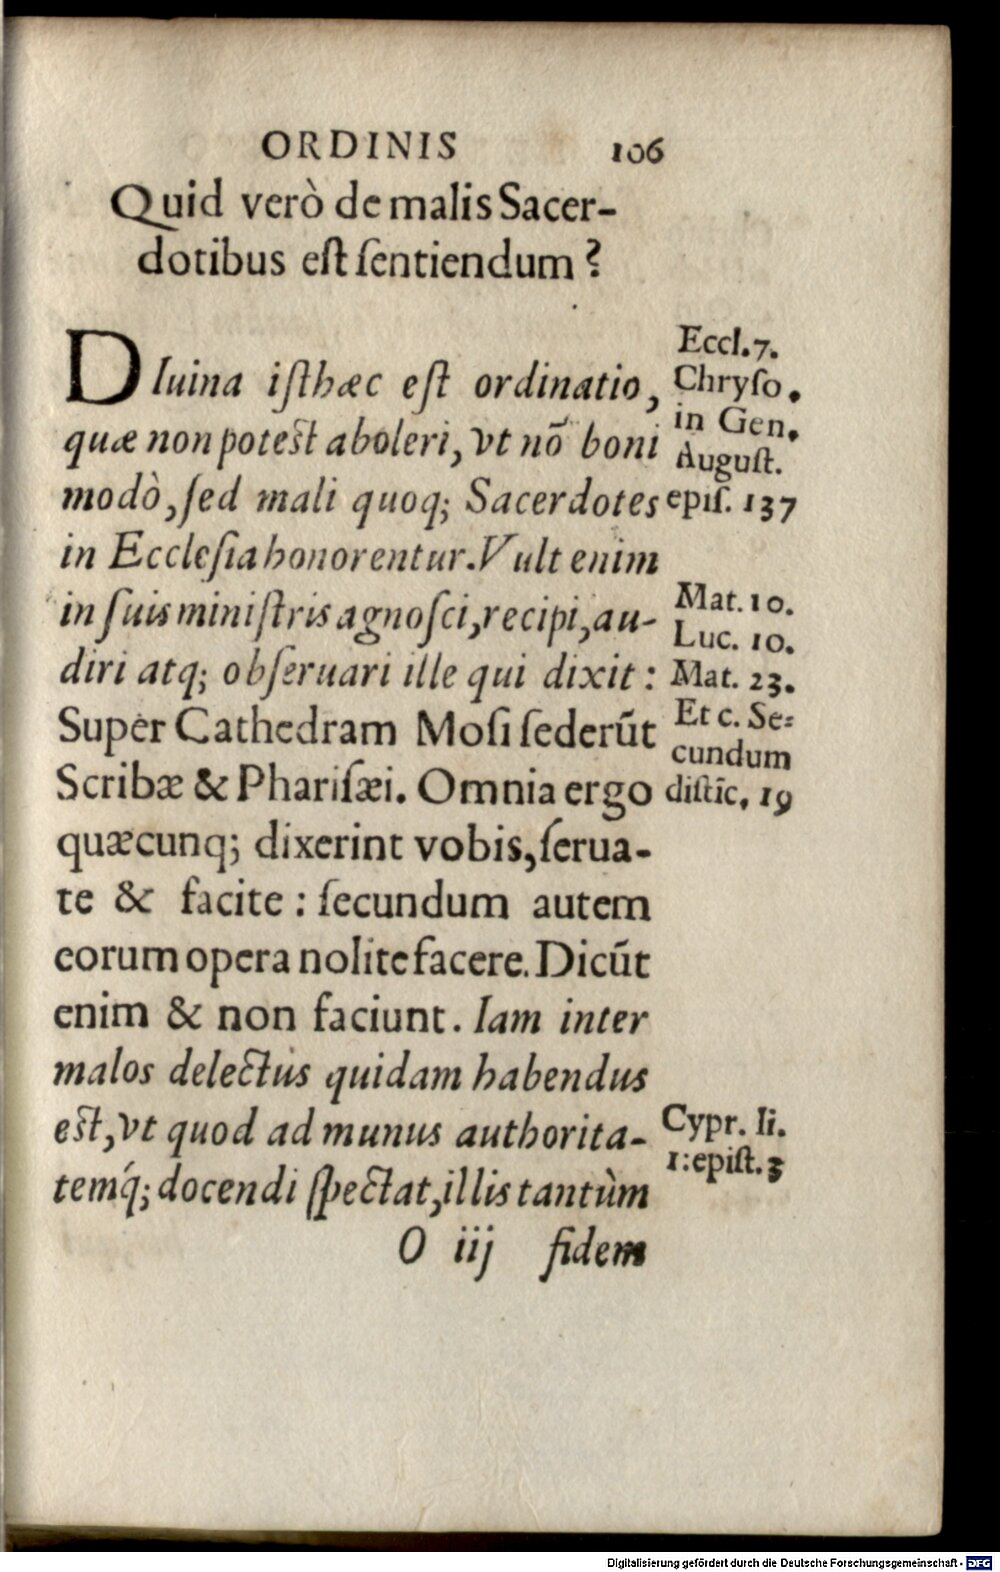 ORDINIS 106
Quid verò de malis Sacer-
dotibus eſt ſentiendum?
DIuina iſthæc eſt ordinatio,
quæ non poteſt aboleri, vt nõ boni
modò, ſed mali quoq; Sacerdotes
in Eccleſia honorentur. Vult enim
in ſuis miniſtris agnoſci, recipi, au-
diri atq; obſeruari ille qui dixit:
Super Cathedram Moſi ſederũt
Scribæ & Phariſæi. Omnia ergo
quæcunq; dixerint vobis, ſerua-
te & facite: ſecundum autem
eorum opera nolite facere. Dicũt
enim & non faciunt. Iam inter
malos delectus quidam habendus
eſt, vt quod ad munus authorita-
temq́; docendi ſpectat, illis tantùm
O iij fidem
Eccl. 7.
Chryſo.
in Gen.
Auguſt.
epiſ. 137
Mat. 10.
Luc. 10.
Mat. 23.
Et c. Se-
cundum
diſtic̃. 19
Cypr. li.
1: epiſt. 3
Digitalisierung gefördert durch die Deutsche Forschungsgemeinschaft - DFG